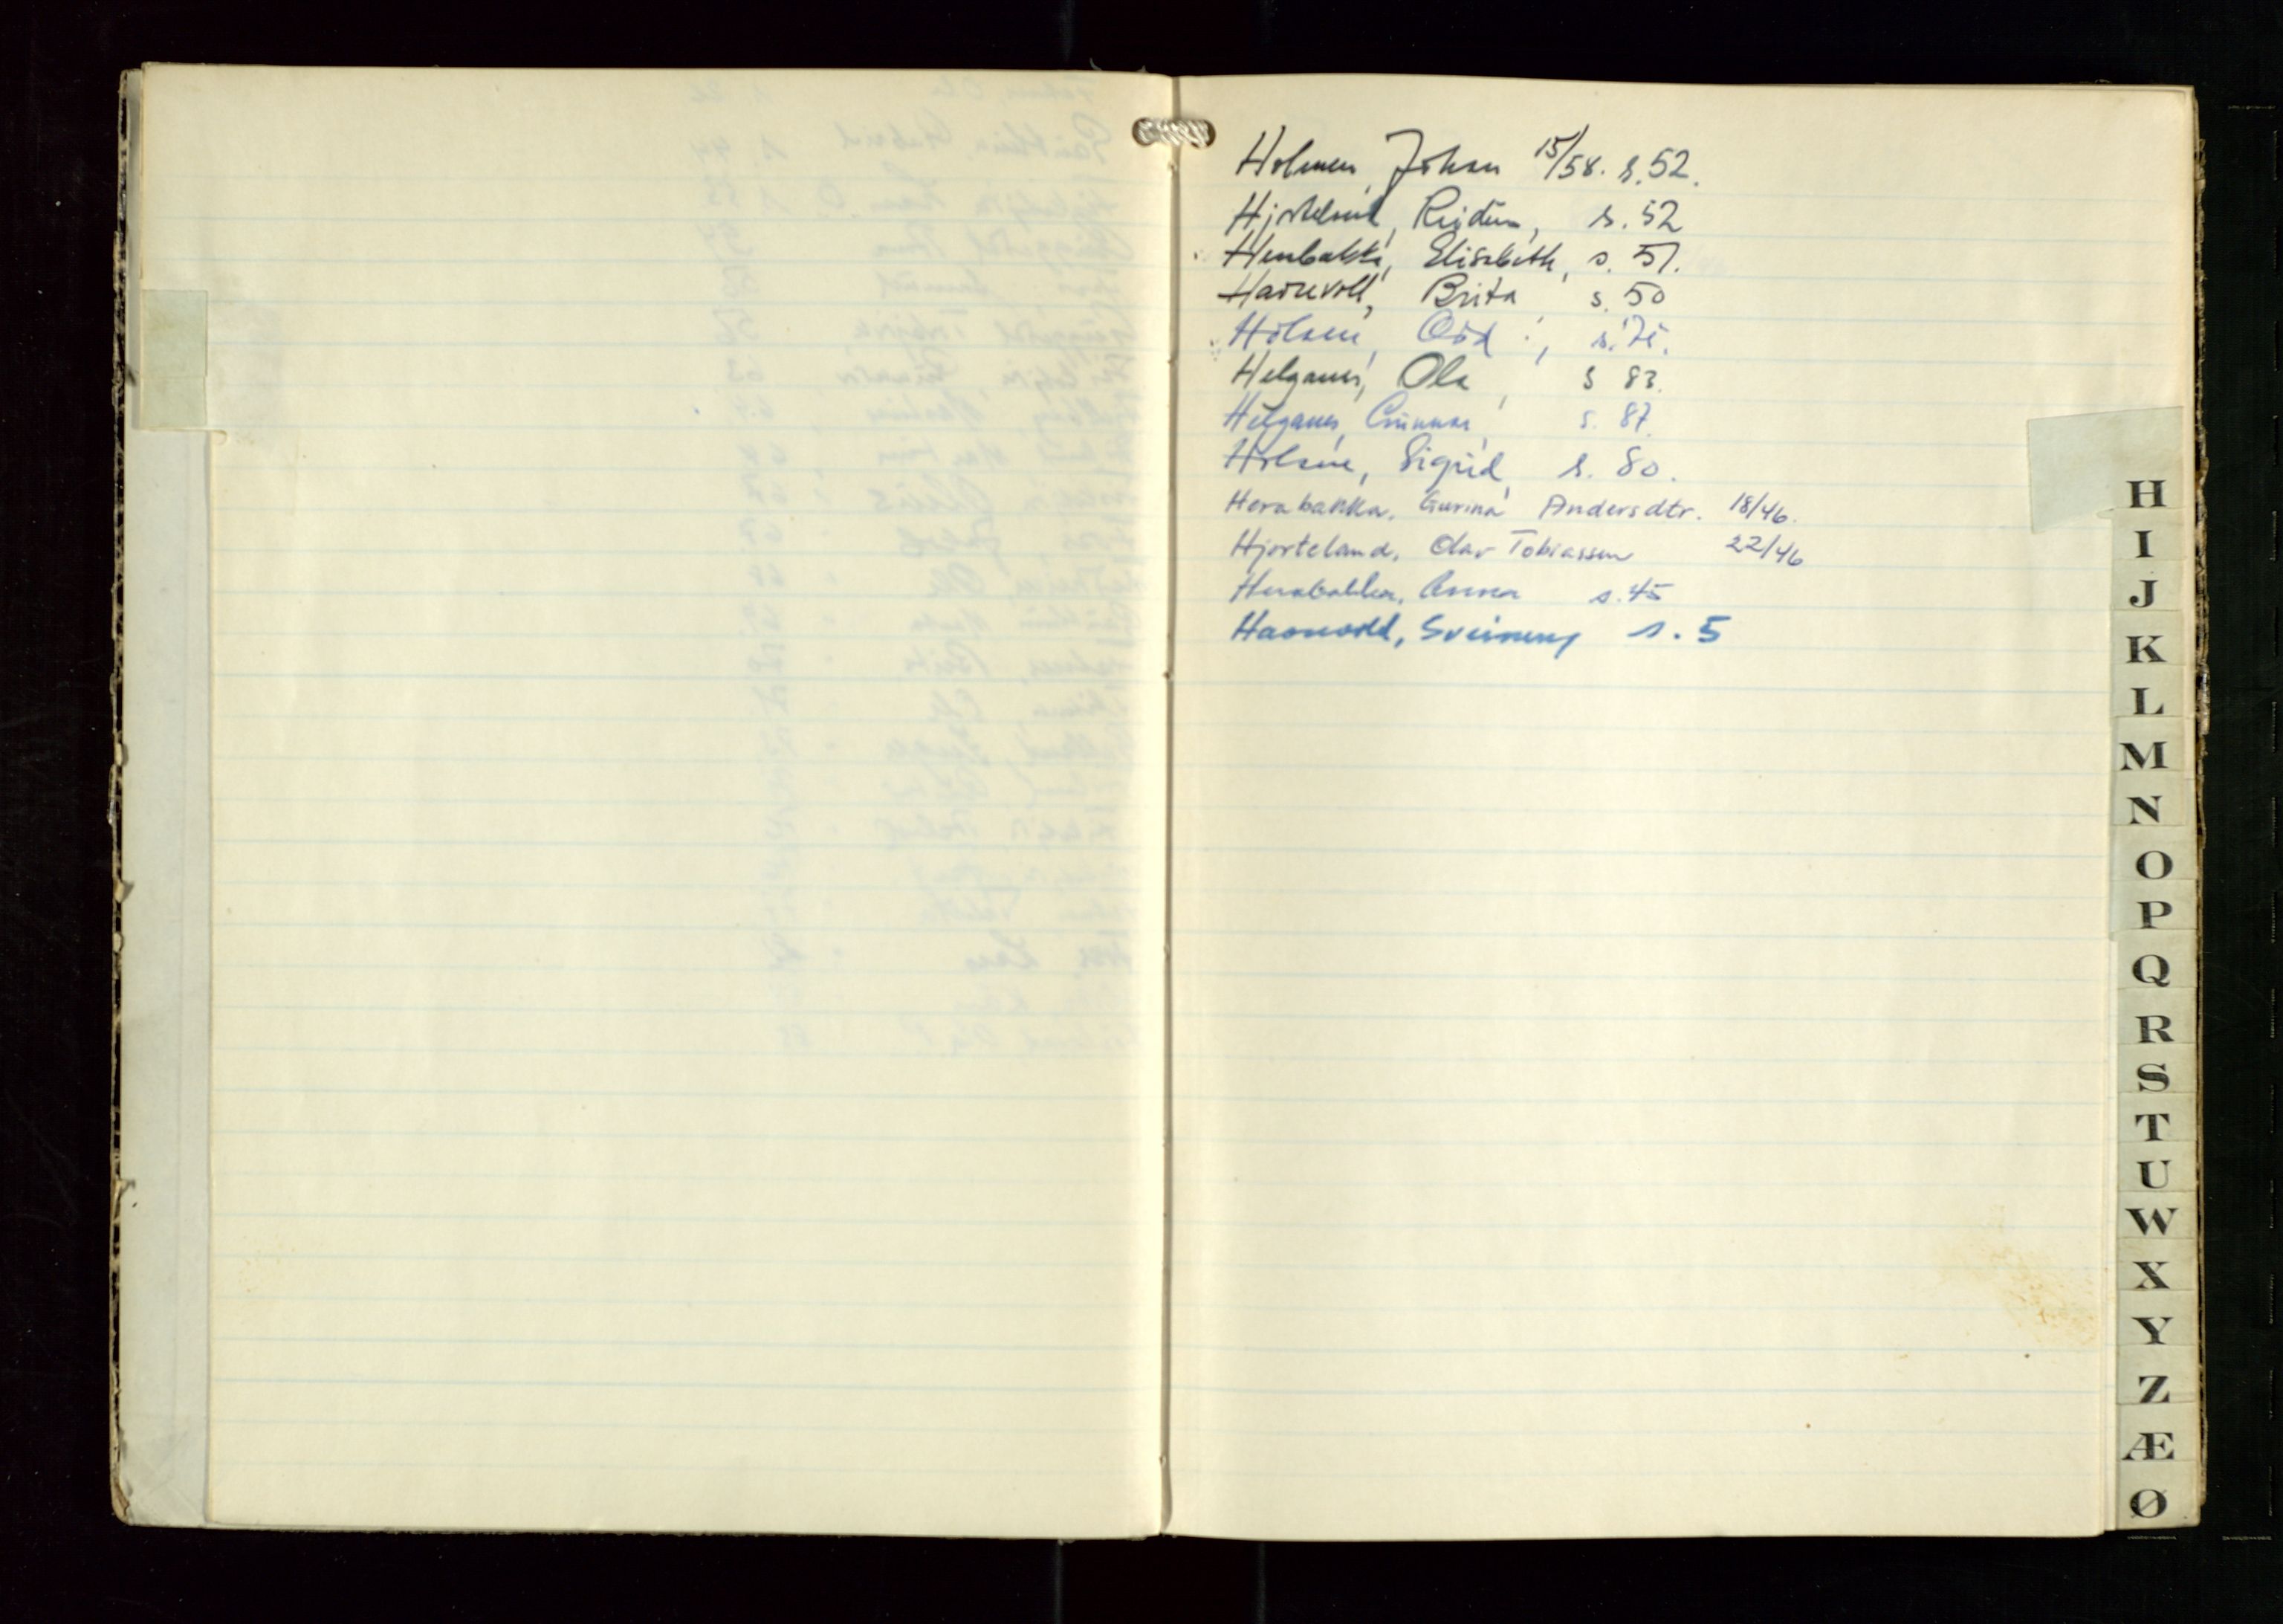 Holmen, Johan 15/58. s. 52.
Hjorteland, Reidun, s. 52
Herabakka, Elisabeth, s. 51.
Haavevoll, Brita, s. 50
Holsen, Odd, s.
Helganes, Ola, s 83.
Helganes, Gunnar, s. 87.
Holsen, Sigrid, s. 80.
Herabakka, Gurina Andersdtr. 18/46.
Hjorteland, Olav Tobiassen 22/46
Herabakka, Anna s. 45
Sveinung s. 5
H
I
J
K
L
M
N
O
P
Q
R
S
T
U
W
X
Y
Z
Æ
Ø